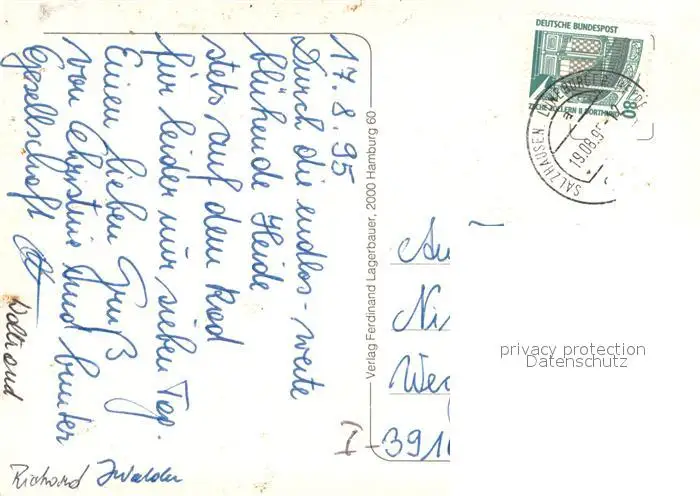 17.8.95
Durch die endlos-weite
blühende Heide
stets auf dem Rad
für leider nur sieben Tag.
Einen lieben Gruß
von Christine und bunter
Gesellschaft
Richard
Verlag Ferdinand Lagerbauer, 2000 Hamburg 60
DEUTSCHE BUNDESPOST
ZECHE ZOLLERN II DORTMUND
80
SALZHAUSEN, LÜNEBURGER HEIDE
19.08.95
An
Ni
We
I-391
privacy protection
Datenschutz